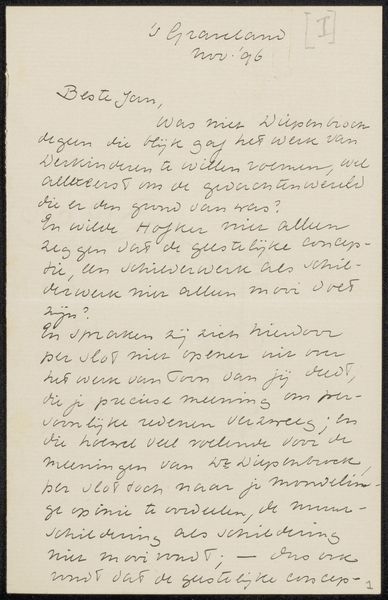 's Graveland [I]
Nov. '96
Beste Jan,
Was niet Diepenbrock
degeen die blijk gaf het werk van
Derkinderen te willen roemen, wel
allereerst om de gedachtenwereld
die er den grond van was?
En wilde Hofker niet alleen
zeggen dat de geestelijke concep-
tie, een schilderwerk als schil-
derwerk niet alleen mooi doet
zijn?
En spraken zij zich hierover
per slot niet opener uit over
het werk van Toon van jij deedt,
die je preciese meening om per-
soonlijke redenen verzweeg; en
die hoewel veel voelende voor de
meeningen van Diepenbrock,
per slot toch naar je mondelin-
ge opinie te oordeelen, de muur-
schildering als schildering
niet mooi vondt; — dus ook
vondt dat de geestelijke concep-
1